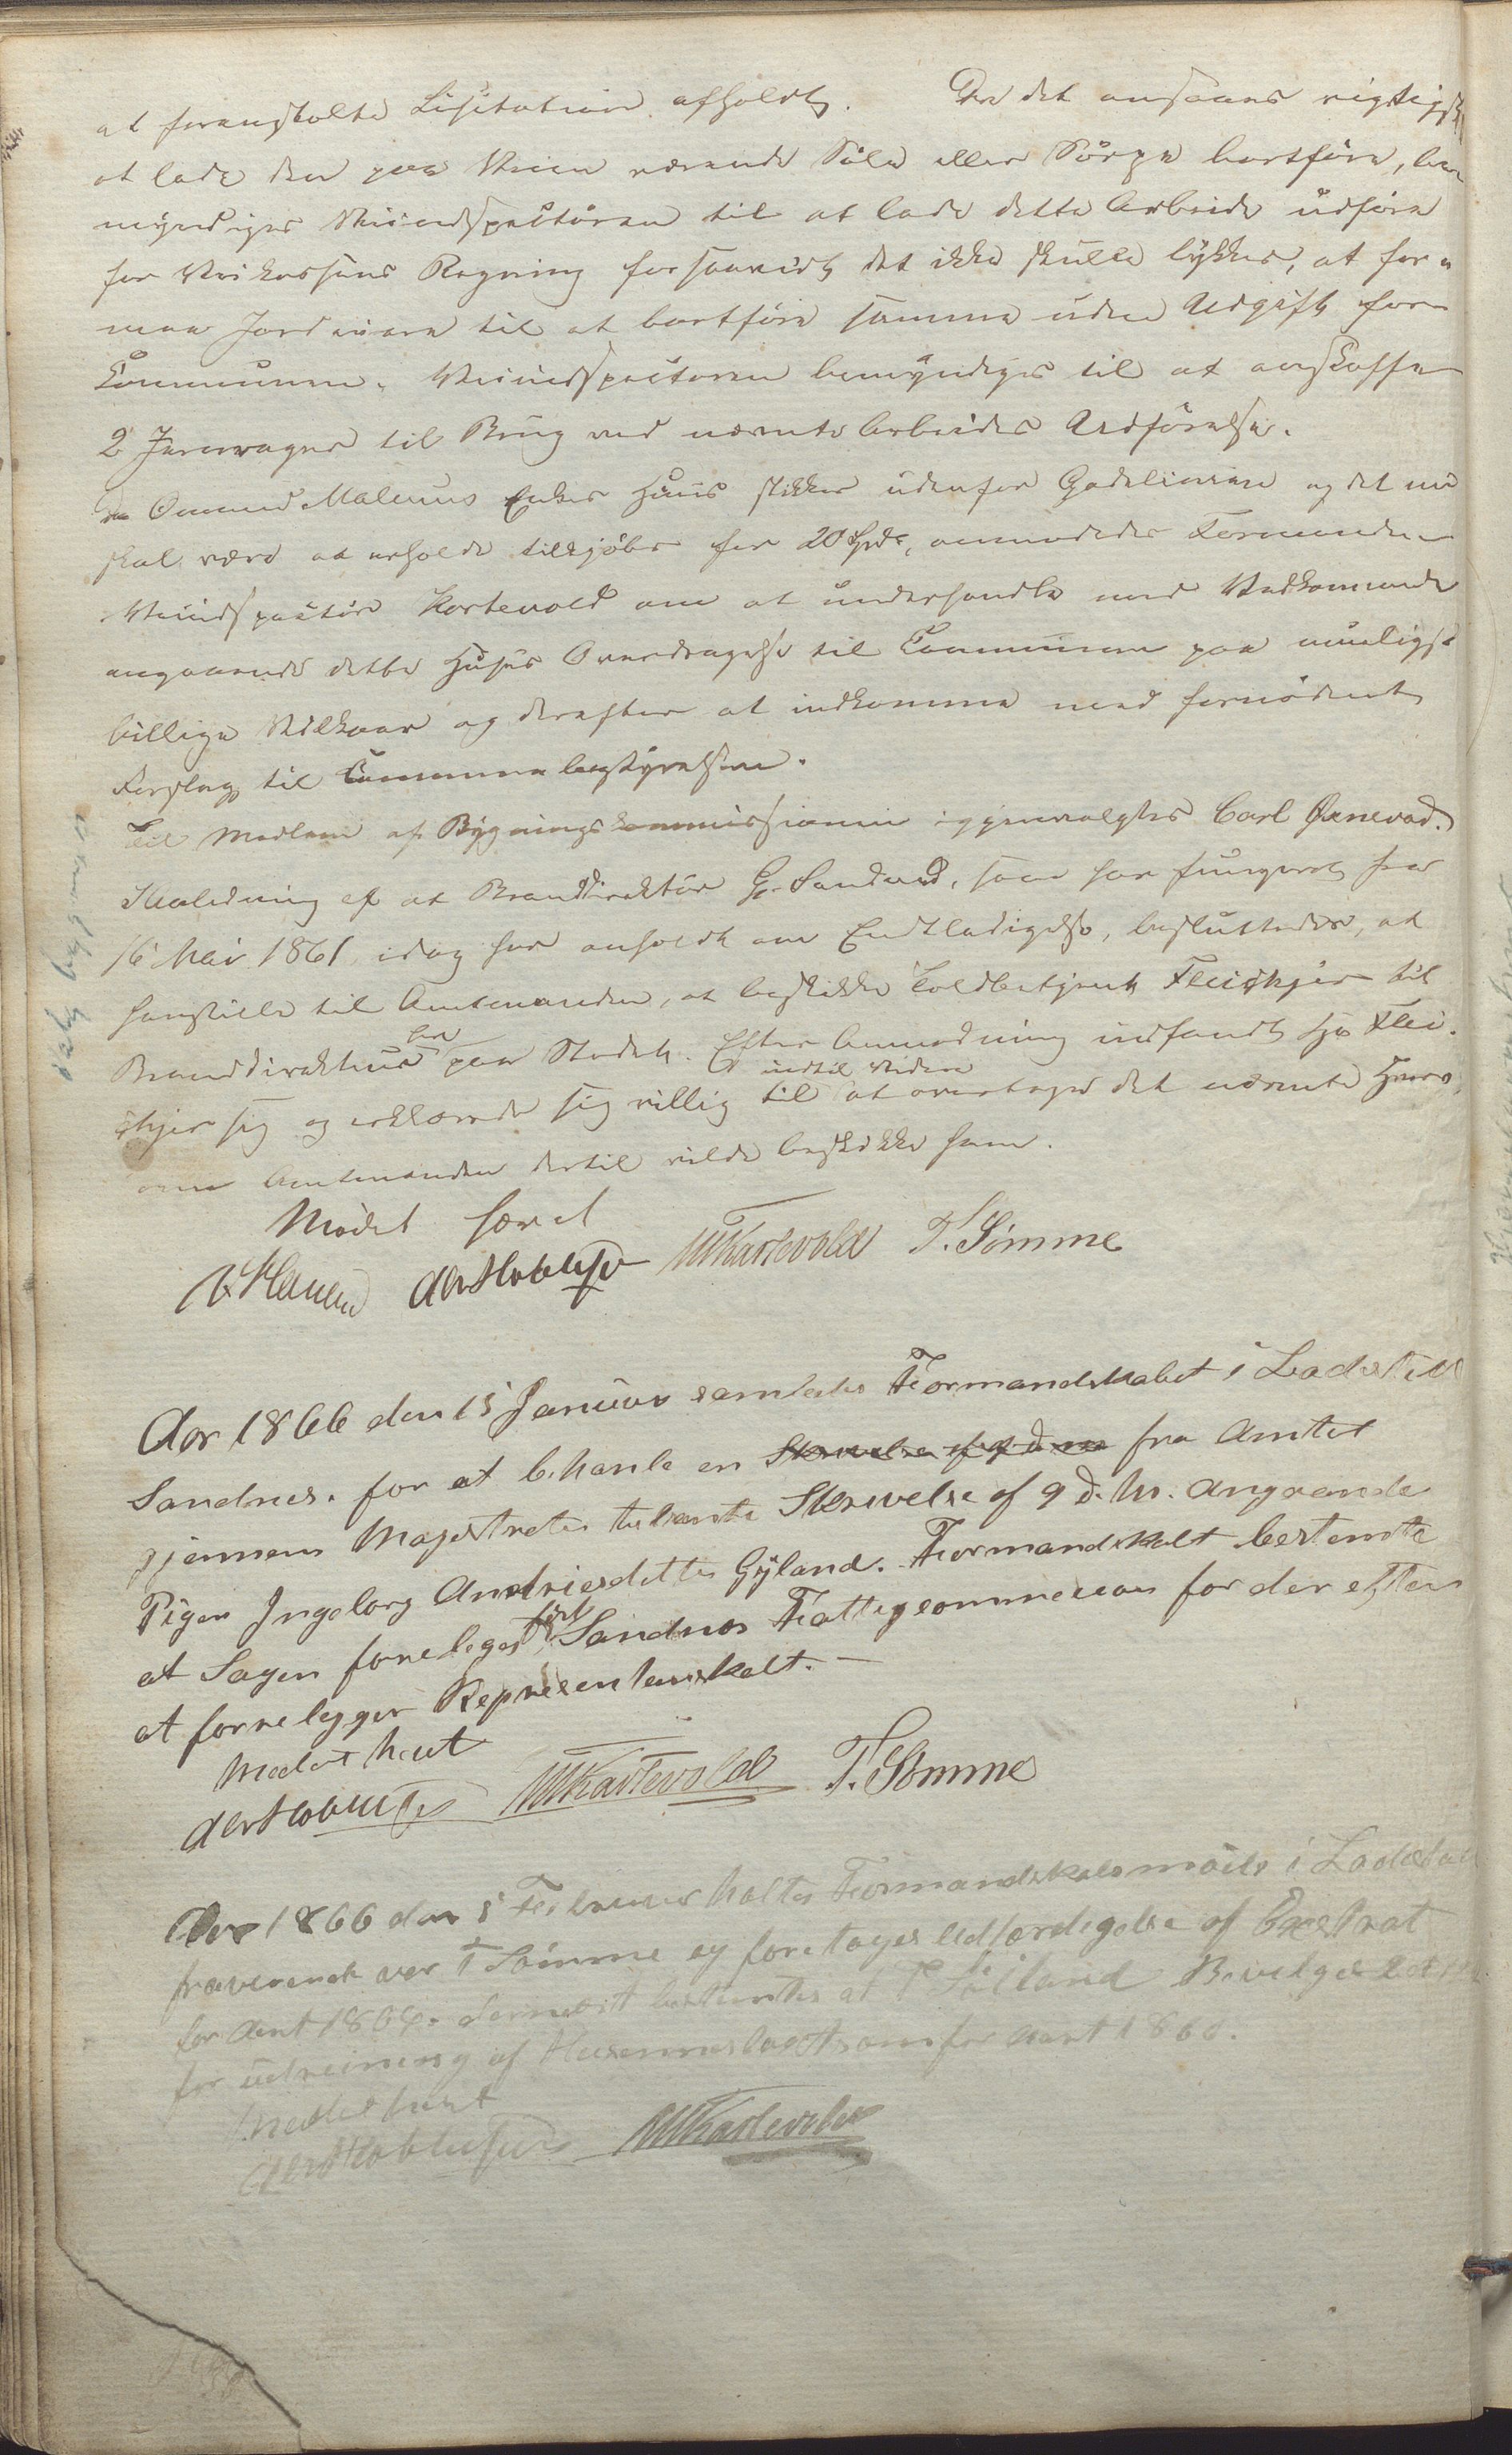 at foranstalte Lisitation afholdt. Da det ansaaes rigtigst
at lade den paa Veien værende Söle eller Sörpe bortföre, be-
myndiges Veiinspektören til at lade dette Arbeide udföre
for Veikassens Regning forsaavidt det ikke skulle lykkes, at for-
maa Jordeiere til at bortföre samme uden Udgift for
Communen. Veiinspektören bemyndiges til at anskaffe
2 Jernvagne til Brug ved nævnte Arbeides Udförelse.
Da Ommund Malenus Enkes Huus stikker udenfor Gadelinien og det nu
skal være at erholde tilkjöbs for 20 Spd, anmodedes Formanden
Veiinspektör Kartevold om at underhandle med Vedkommende
angaaende dette Huses Overdragelse til Communen paa muligst
billige Vilkaar og derefter at indkomme med fornödent
Forslag til Communebestyrelsen.
Til Medlem af Bygningskommissionen igjenvalgtes Carl Ørnevad.
I Anledning af at Branddirektör G. Sandved, som har fungeret fra
16 Mai 1861 idag har anholdt om Entledigelse, besluttedes, at
henstille til Amtmanden, at beskikke Toldbetjent Fleischjer til
Branddirekteur her paa Stedet. Efter Anmodning indfandt Hr Flei-
schjer sig og erklærede sig villig til indtil Videre at overtage det nævnte Hverv,
om Amtmanden dertil vilde beskikke ham.
Mödet hævet
MKartevold T. Sömme
Aar 1866 den 15 Januar samledes Formandskabet i Ladested
Sandnes. for at behanle en Skrivelse af 9 d. m fra Amtet
gjennem Majestratet tilsente Skrivelse af 9 d. M. Angaaende
Pigen Ingeborg Andriesdatter Gyland. Formandskabt bestemte
at Sagen forreleges först Sandnes Fattigcommesion for der efter
at forrelegges Represententskabt. —
Mødet hævt
MKartevold T. Sömme
Aar 1866 den 5 Februar holtes Formandskabsmöde i Ladestad
fraverende var T Sömme og foretoges Udferdigelse af Exstrat
for Aaret 1864. dernæst bestemtes at T Söiland Bevilges
for udreining af som for Aaret 1866.
Mødet hævt
MKartevold